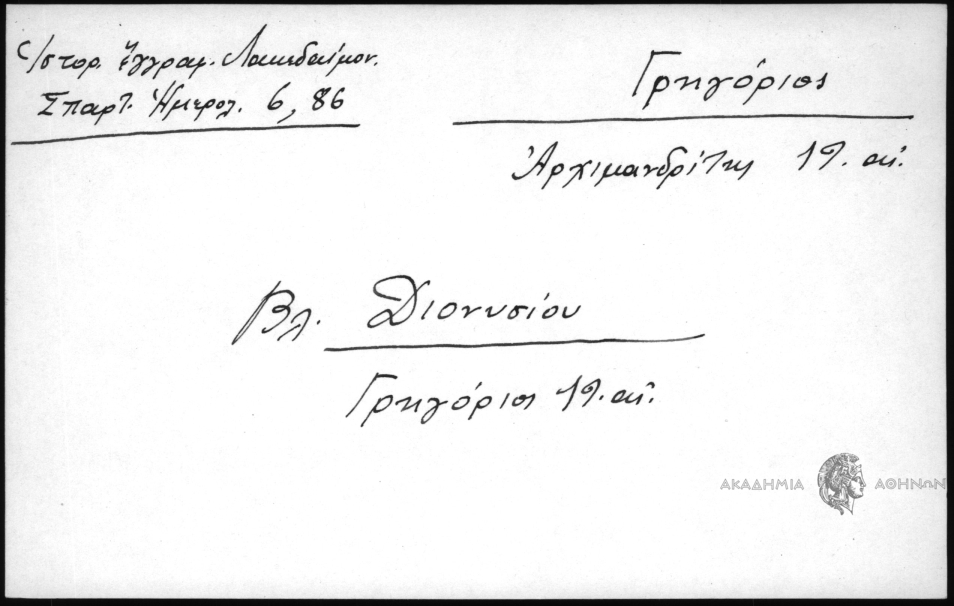 Ἱστορ. ἔγγραφ. Λακεδαίμον.
Σπαρτ. Ἡμερολ. 6, 86
Γρηγόριος
Ἀρχιμανδρίτης 19. αἰ.
Βλ. Διονυσίου
Γρηγόριος 19. αἰ.
ΑΚΑΔΗΜΙΑ ΑΘΗΝΩΝ